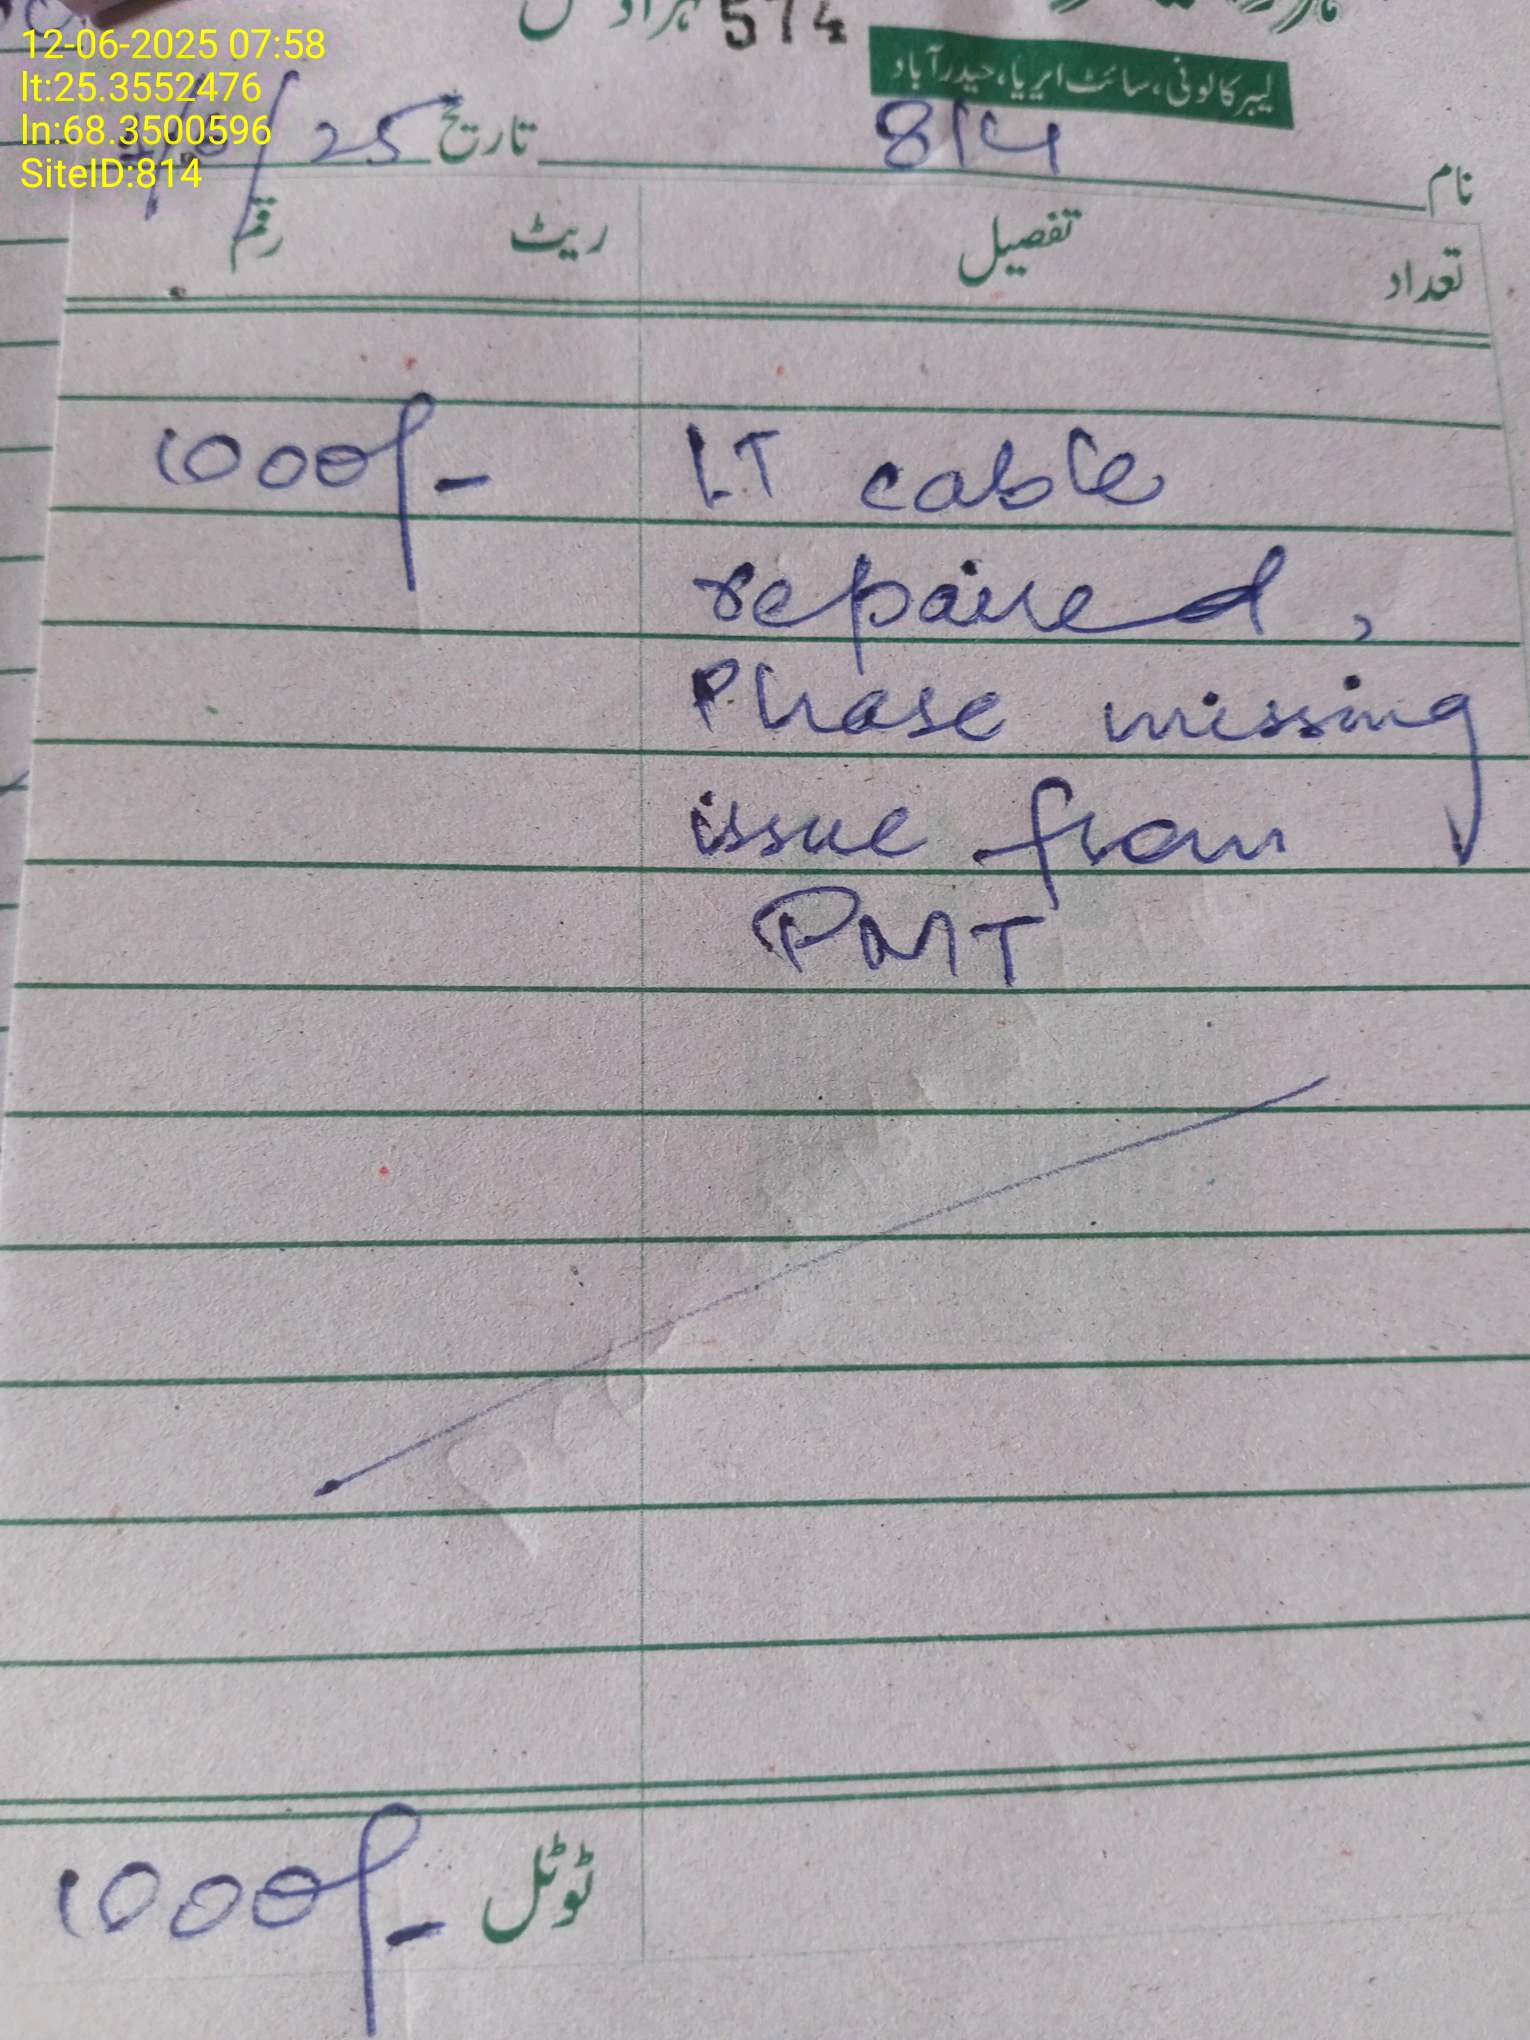 12-06-2025 07:58
lt:25.3552476
ln:68.3500596
SiteID:814
574
لیبر کالونی، سائٹ ایریا، حیدرآباد
نام 814 تاریخ 25
تعداد تفصیل ریٹ رقم
L.T cable 1000/-
repaired,
Phase missing
issue from
PMT
ٹوٹل 1000/-